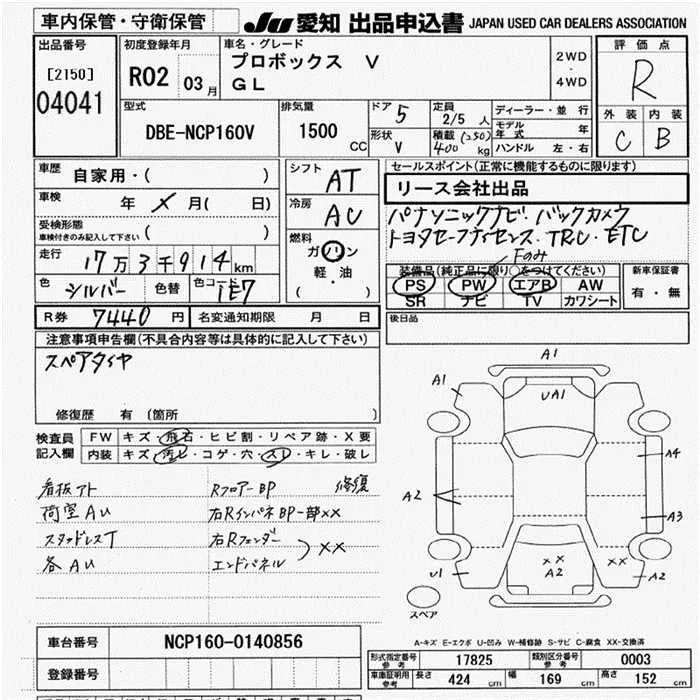 車内保管・守衛保管
JU 愛知 出品申込書 JAPAN USED CAR DEALERS ASSOCIATION
出品番号 初度登録年月 車名・グレード 評価点
[2150] R02 03月 プロボックス V 2WD・4WD R
04041 GL
型式 排気量 ドア 5 定員 2/5人 ディーラー・並行 外装 内装
DBE-NCP160V 1500CC 形状 V 積載 (250) 400kg モデル年式 年 C B
ハンドル 左・右
車歴 自家用・( ) シフト AT セールスポイント(正常に機能するものに限ります)
車検 年 X 月( 日) 冷房 AC リース会社出品
受検形態 車検付きのみ記入して下さい ( ) パナソニックナビ・バックカメラ
走行 17万3千914km 燃料 ガソリン・軽・油 ( ) トヨタセーフティセンス・TRC・ETC
Fのみ
色 シルバー 色替 色コード 1E7 装備品(純正品に限り○をつけてください) 新車保証書
PS PW エアB AW 有・無
SR ナビ TV カワシート
R券 7440円 名変通知期限 月 日 後日品
注意事項申告欄(不具合内容等は具体的に記入して下さい)
スペアタイヤ
修復歴 有 (箇所 )
検査員記入欄 FW キズ・飛石・ヒビ割・リペア跡・X要
内装 キズ・汚レ・コゲ・穴・スレ・キレ・破レ
看板アト RフロアーBP 修復
荷室AU 右RインパネBP一部××
スタッドレスT 右Rフェンダー
各AU エンドパネル ) ××
A1
A1 UA1
A4
A2
A3
U1 ×× A2 ×× A2
スペア
A-キズ E-エクボ U-凹み W-補修跡 S-サビ C-腐食 XX-交換済
車台番号 NCP160-0140856
登録番号
形式指定番号 参考 17825 類別区分番号 参考 0003
車庫証明用 参考 長さ 424cm 幅 169cm 高さ 152cm